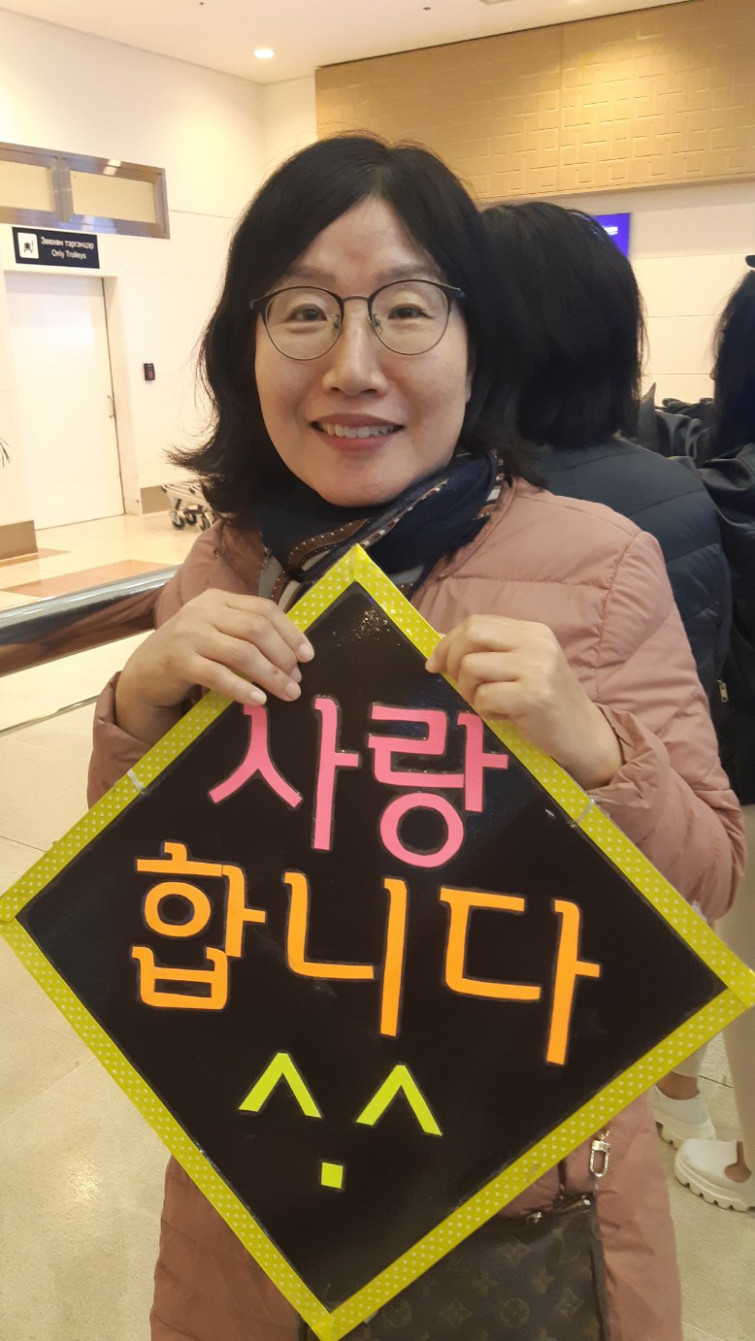 Зөвхөн тэргэнцэр
Only Trolleys
사랑
합니다
^.^